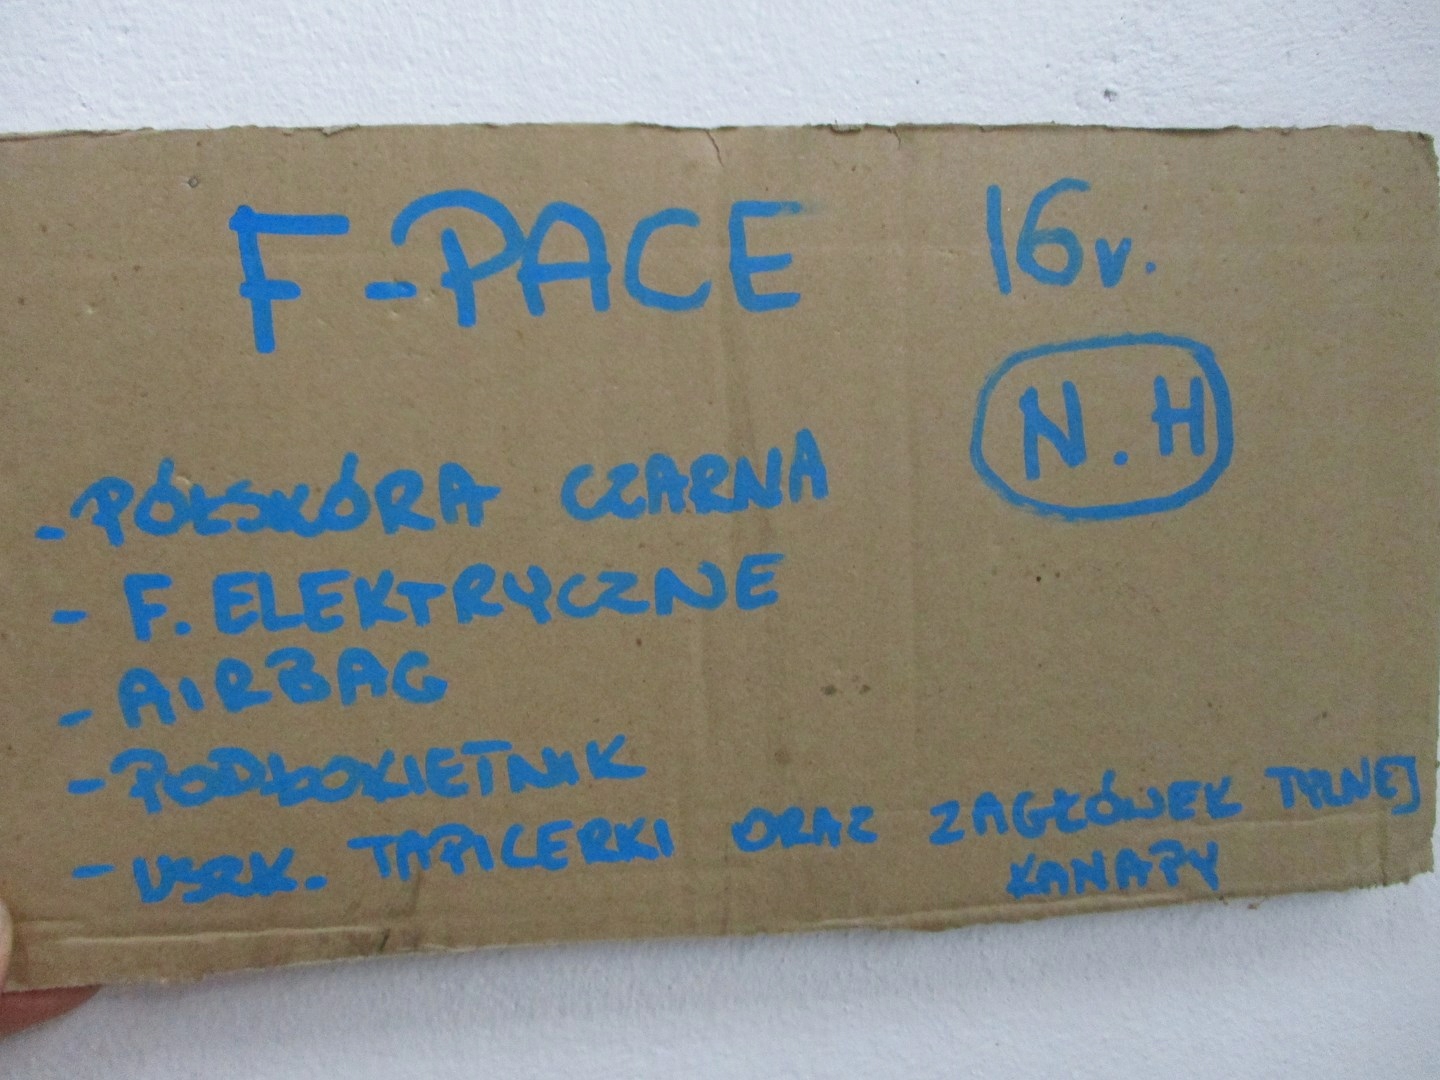 F-PACE 16r.
N.H
- PÓŁSKÓRA CZARNA
- F. ELEKTRYCZNE
- AIRBAG
- PODŁOKIETNIK
- USZK. TAPICERKI ORAZ ZAGŁÓWEK TYLNEJ
KANAPY